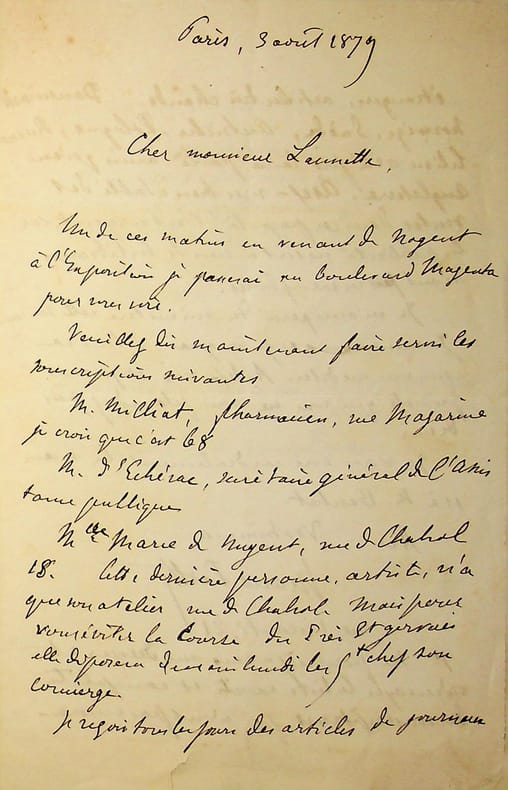 Paris, 3 août 1879
Cher monsieur Launette,
Un de ces matins en venant de Nogent
à l'Exposition je passerai au boulevard Magenta
pour vous voir.
Veuillez dès maintenant faire servir les
souscriptions suivantes
M. Milliat, pharmacien, rue Mazarine
je crois que c'est 68
M. d'Echérac, secrétaire général de l'Assis
tance publique
Melle Marie de Nugent, rue de Chabrol
18. Cette dernière personne, artiste, n'a
que son atelier rue de Chabrol. Mais pour
vous éviter la course du Pré St gervais
elle déposera demain lundi les chez son
concierge.
Je reçois tous les jours des articles de journaux